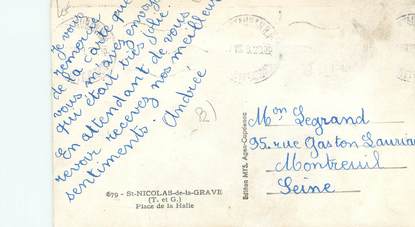 Je vous
remercie
de la carte que
vous m'avez envoyé
qui était très jolie.
En attendant de vous
revoir recevez nos meilleurs
sentiments.
Andrée
82
679 - St-NICOLAS-de-la-GRAVE
(T. et G.)
Place de la Halle
Edition MTS. Agen-Capdenac
Mon Legrand
95, rue Gaston Lauriau
Montreuil
Seine